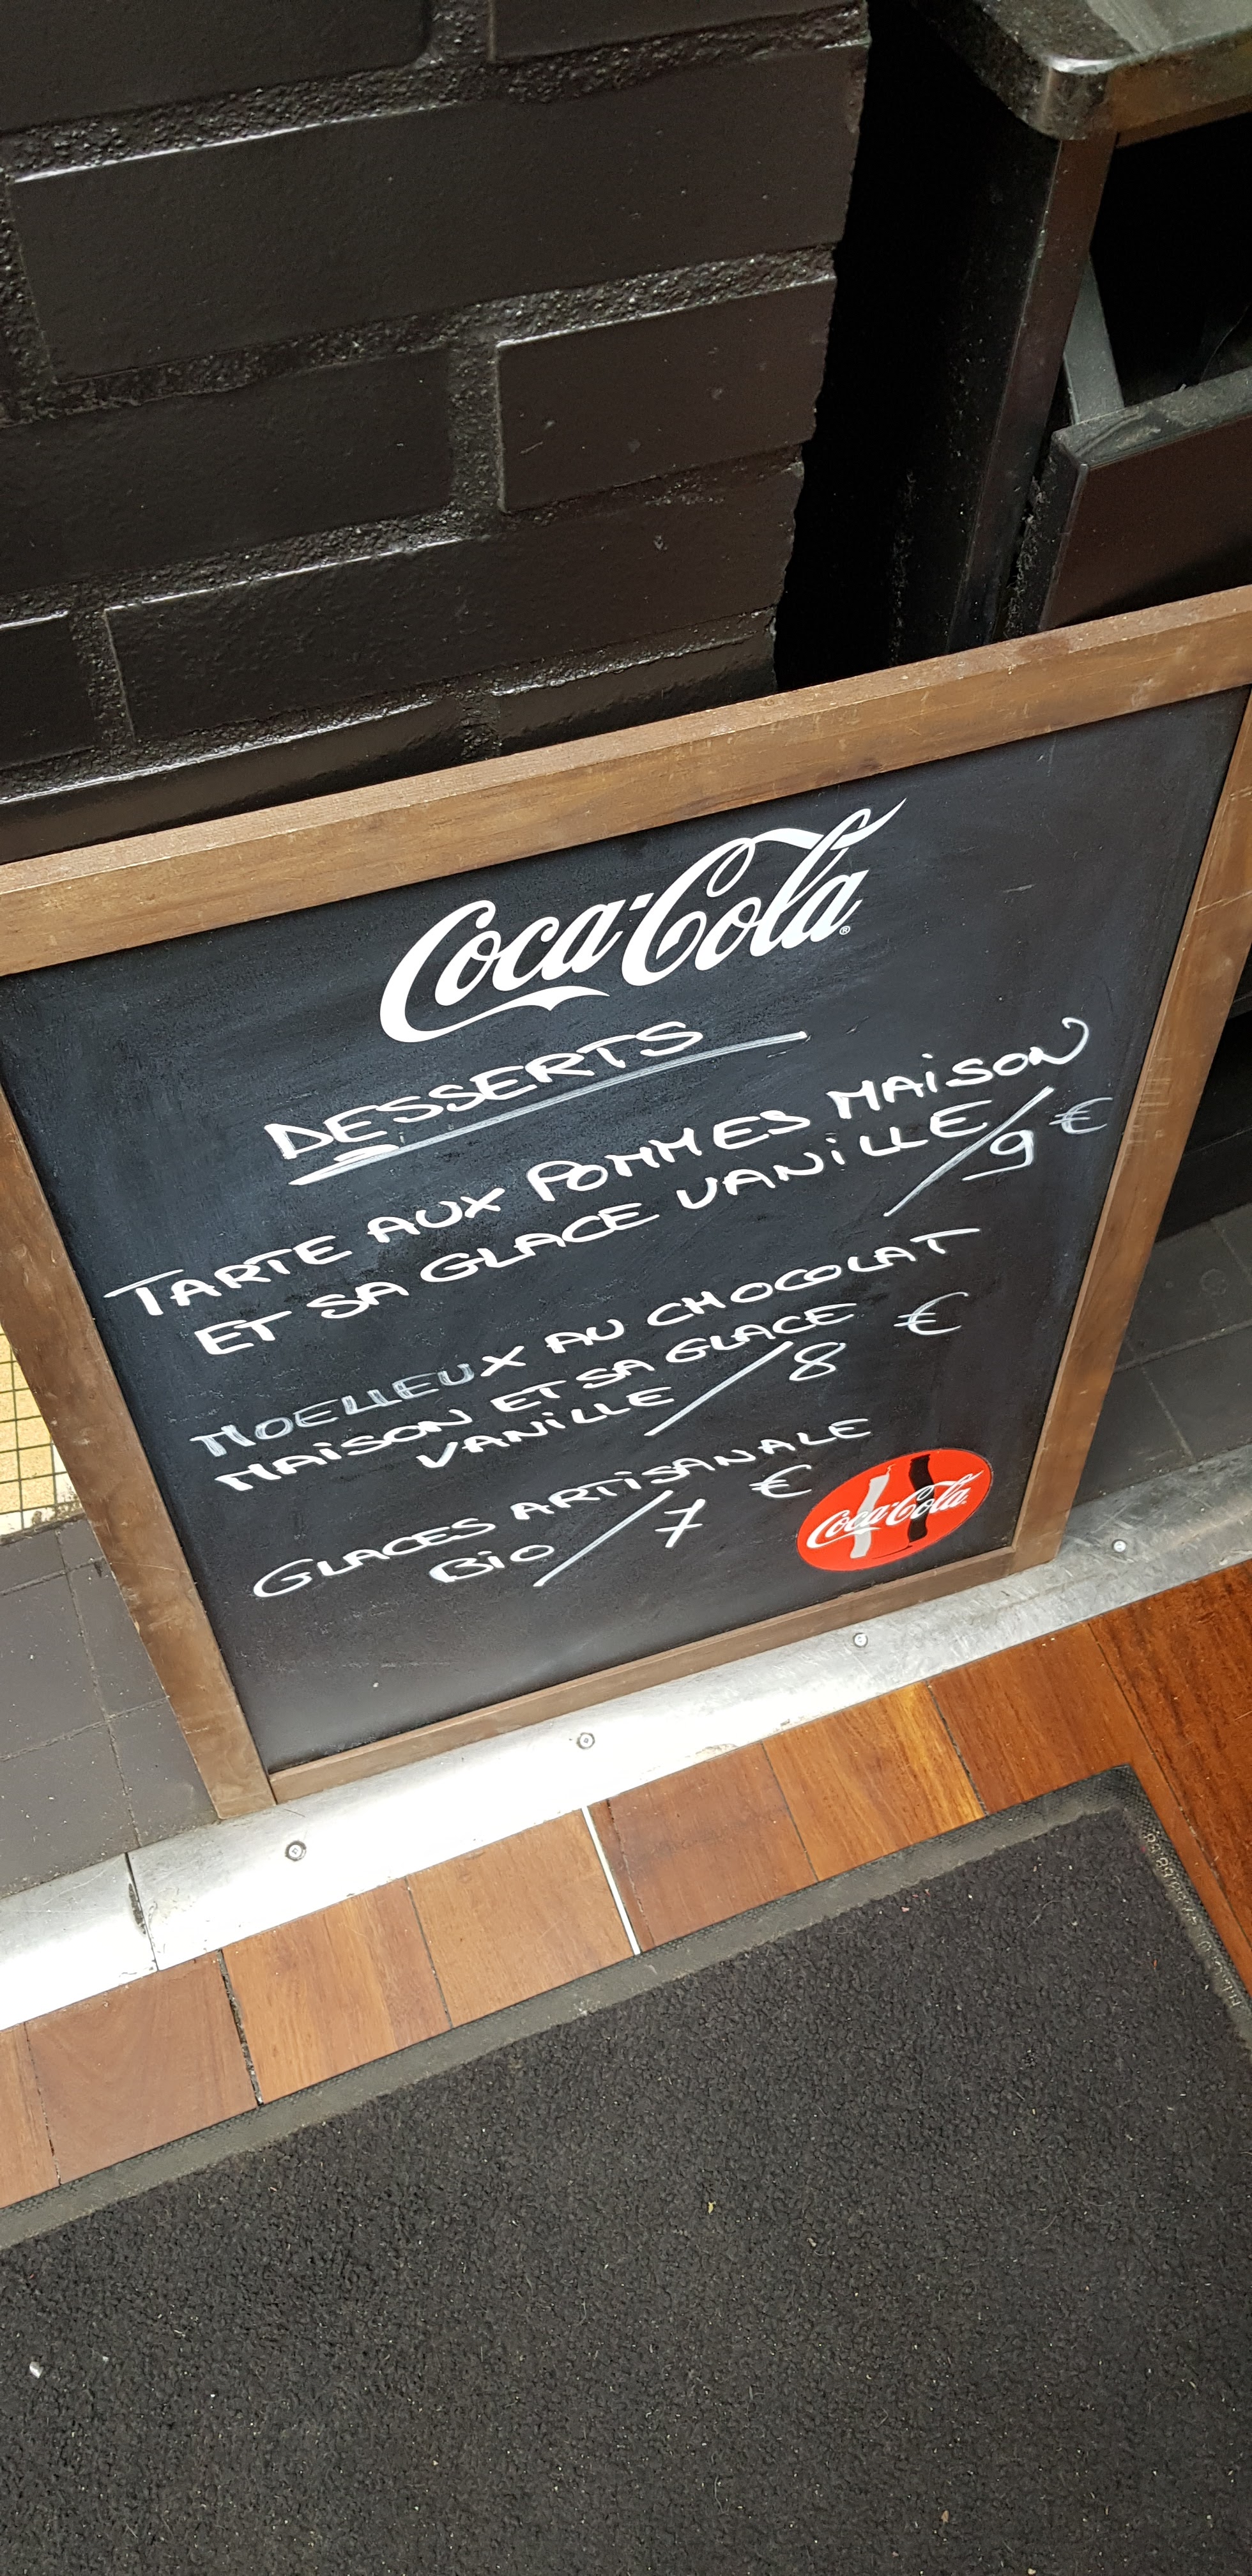 Coca-Cola
DESSERTS
TARTE AUX POMMES MAiSON
ET SA GLACE VANiLLE/9€
MOELLEUX AU CHOCOLAT
MAiSON ET SA GLACE €
VANiLLE/8
GLACES ARTiSANALE
BiO/7 €
Coca-Cola